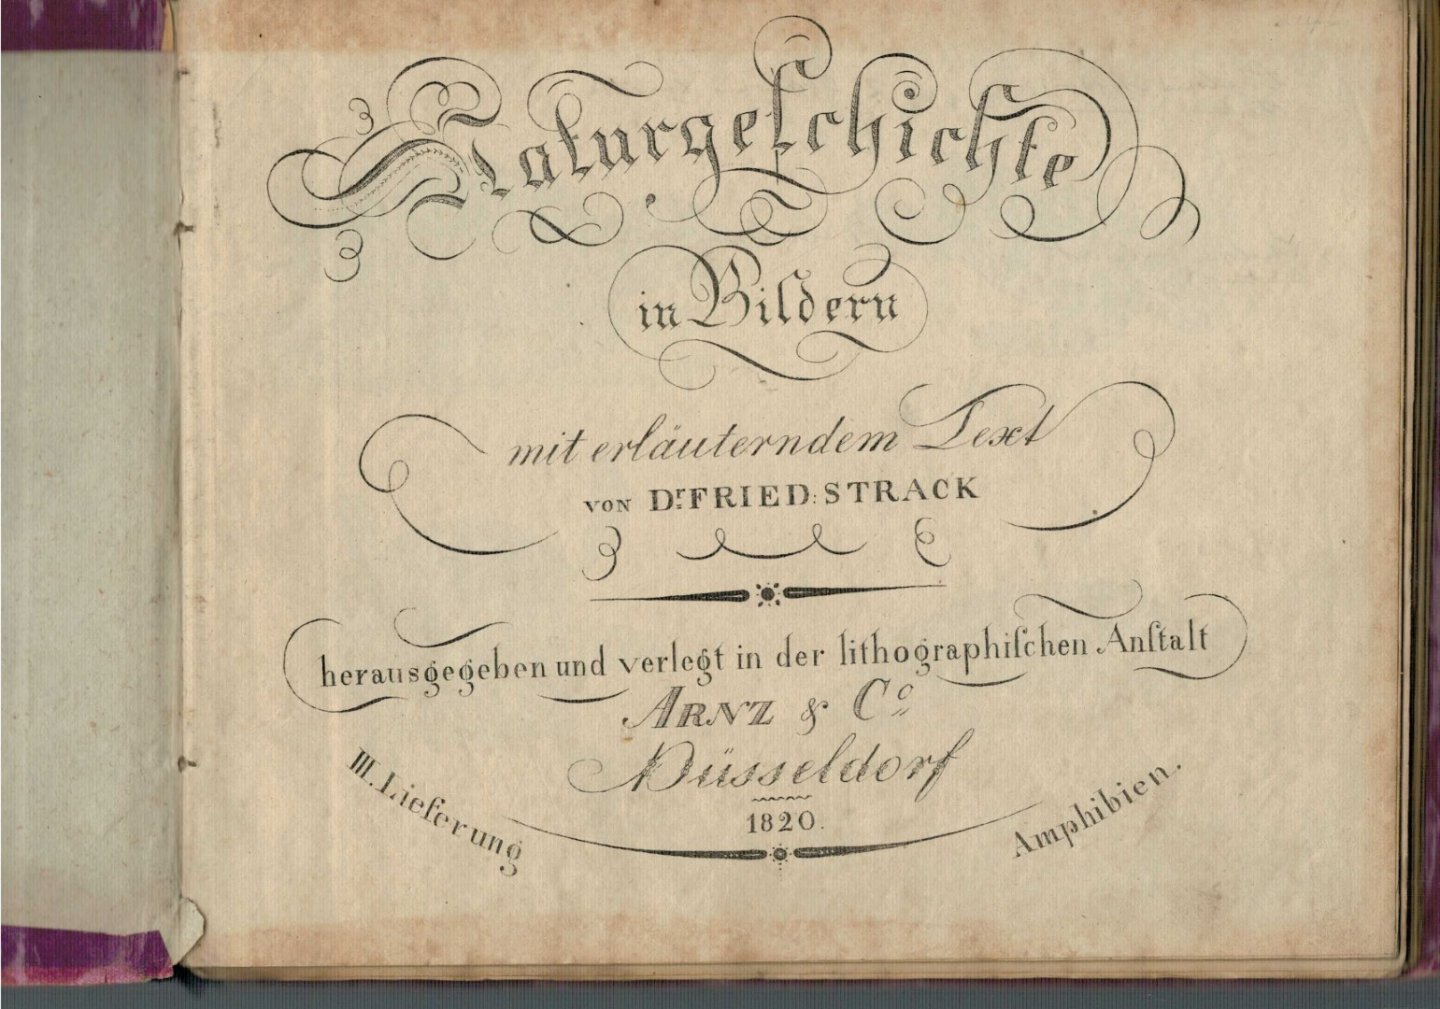 Naturgeſchichte
in Bildern
mit erläuterndem Text
VON Dr. FRIED: STRACK
herausgegeben und verlegt in der lithographiſchen Anſtalt
ARNZ & Co
Düsseldorf
1820.
III. Lieferung
Amphibien.